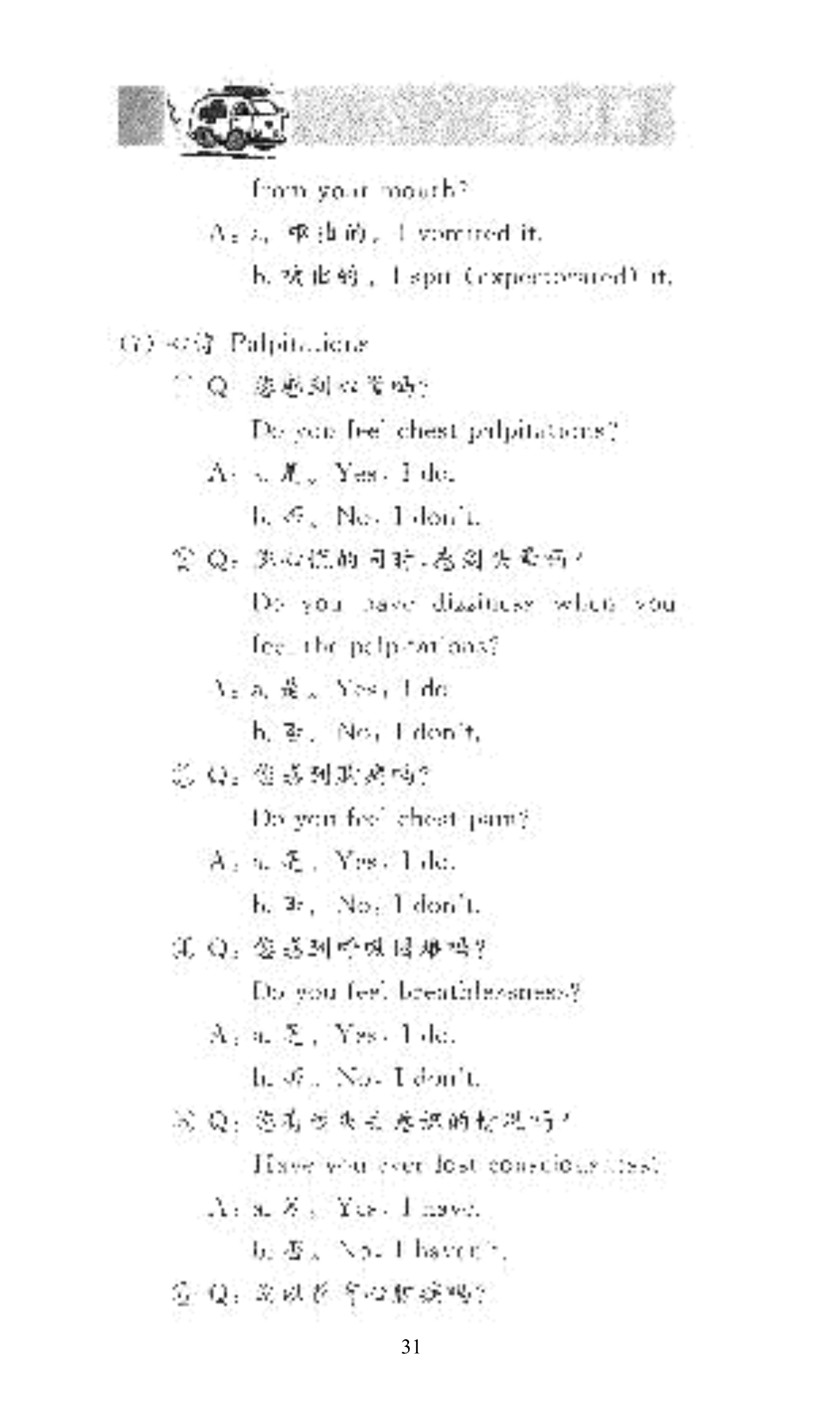 from your mouth?
A: a. 呕出的。I vomited it.
b. 咳出的。I spit (expectorated) it.
(7) 心慌 Palpitations
① Q: 您感到心慌吗?
Do you feel chest palpitations?
A: a. 是。Yes, I do.
b. 否。No, I don't.
② Q: 心慌的同时,感到头晕吗?
Do you have dizziness when you
feel the palpitations?
A: a. 是。Yes, I do.
b. 否。No, I don't.
③ Q: 您感到胸痛吗?
Do you feel chest pain?
A: a. 是。Yes, I do.
b. 否。No, I don't.
④ Q: 您感到呼吸困难吗?
Do you feel breathlessness?
A: a. 是。Yes, I do.
b. 否。No, I don't.
⑤ Q: 您有过失去意识的情况吗?
Have you ever lost consciousness?
A: a. 是。Yes, I have.
b. 否。No, I haven't.
⑥ Q: 心脏病吗?
31